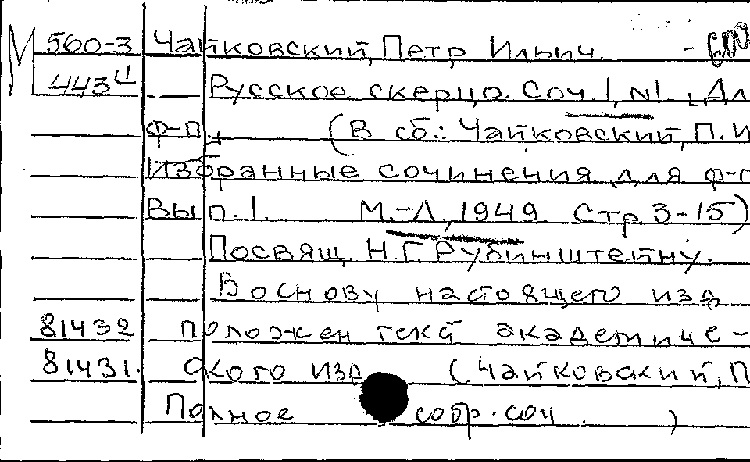 М 560-3 Чайковский, Петр Ильич. -
443 Ч Русское скерцо. Соч. 1, №1. Дл
ф-п. (В сб.: Чайковский, П. И
Избранные сочинения для ф-п
Вып. 1. М.-Л, 1949. Стр. 3-15)
Посвящ. Н. Г. Рубинштейну.
В основу настоящего изд
81432 положен текст академиче-
81431. ского изд (Чайковский, П
Полное собр. соч. )